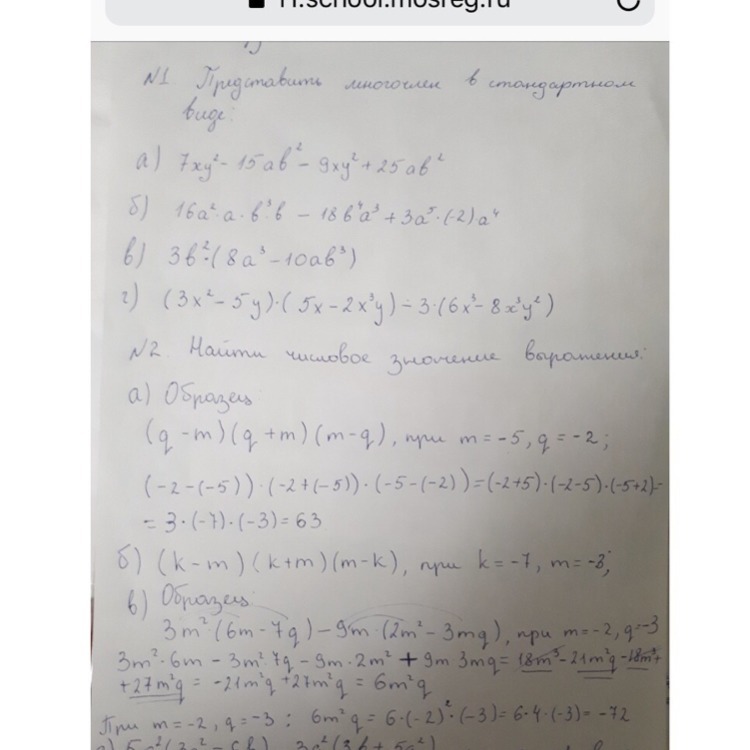 11.school.mosreg.ru
№1. Представить многочлен в стандартном
виде:
а) 7xy² - 15ab² - 9xy² + 25ab²
б) 16a²·a·b³·b - 18b⁴a³ + 3a⁵·(-2)·a⁴
в) 3b²·(8a³ - 10ab³)
г) (3x² - 5y)·(5x - 2x³y) - 3·(6x³ - 8x³y²)
№2. Найти числовое значение выражения:
а) Образец
(q - m)(q + m)(m - q), при m = -5, q = -2;
(-2 - (-5))·(-2 + (-5))·(-5 - (-2)) = (-2+5)·(-2-5)·(-5+2) =
= 3·(-7)·(-3) = 63
б) (k - m)(k + m)(m - k), при k = -7, m = -3;
в) Образец:
3m²·(6m - 7q) - 9m·(2m² - 3mq), при m = -2, q = -3
3m²·6m - 3m²·7q - 9m·2m² + 9m·3mq = 18m³ - 21m²q - 18m³ +
+ 27m²q = -21m²q + 27m²q = 6m²q
При m = -2, q = -3 : 6m²q = 6·(-2)²·(-3) = 6·4·(-3) = -72